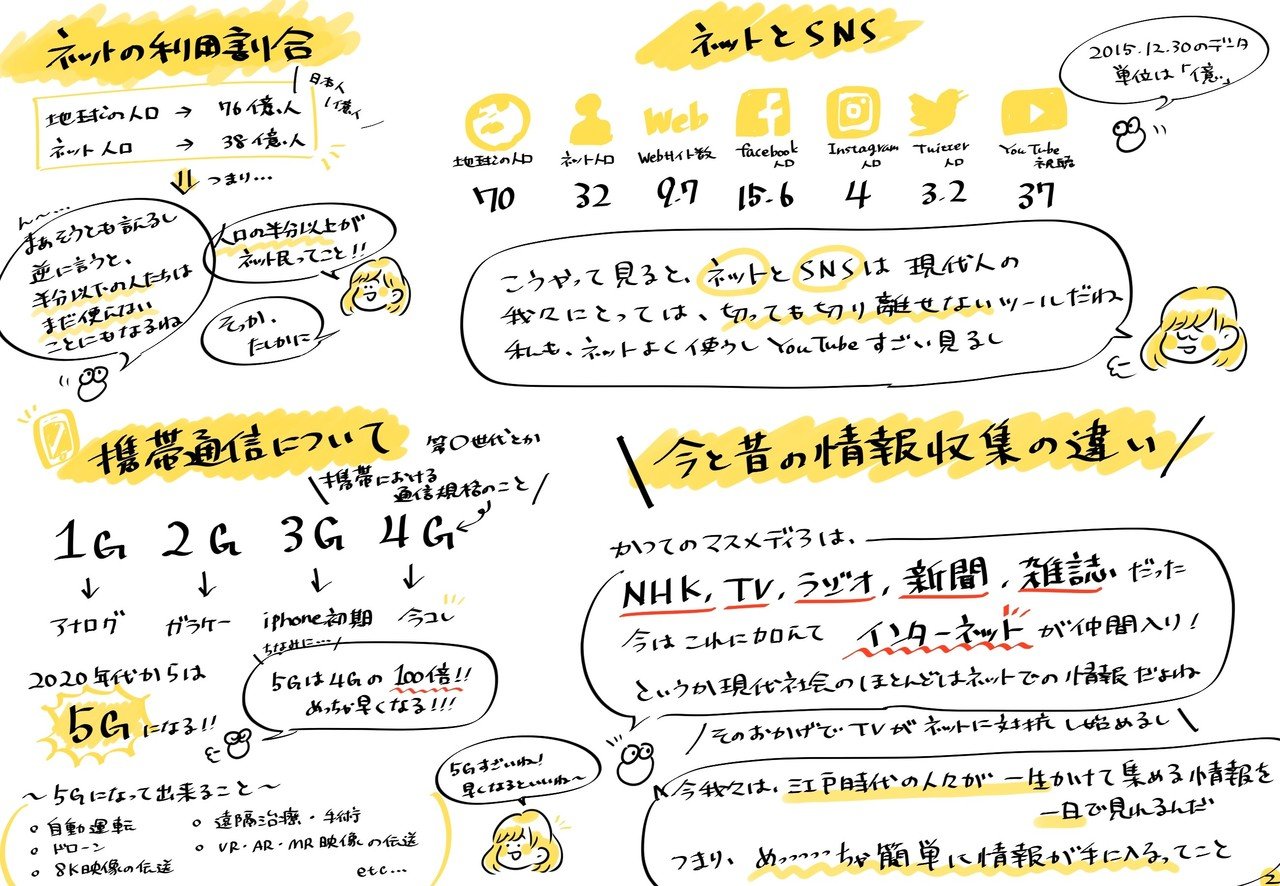 ネットの利用割合
地球の人口 → 76億.人
ネット人口 → 38億.人
日本人
1億人
つまり...
人口の半分以上が
ネット民ってこと!!
ん〜...
まぁそうとも言えるし
逆に言うと、
半分以下の人たちは
まだ使えない
ことにもなるね
そっか、
たしかに
ネットとSNS
2015.12.30のデータ
単位は「億」
Web
地球の人口
70
ネット人口
32
Webサイト数
9.7
facebook
人口
15.6
Instagram
人口
4
Twitter
人口
3.2
YouTube
視聴
37
こうやって見ると、ネットとSNSは現代人の
我々にとっては、切っても切り離せないツールだね
私も、ネットよく使うしYouTubeすごい見るし
携帯通信について
第〇世代とか
携帯における
通信規格のこと
1G 2G 3G 4G
↓ ↓ ↓ ↓
アナログ ガラケー iphone初期 今コレ
2020年代からは
5Gになる!!
ちなみに....
5Gは4Gの100倍!!
めっちゃ早くなる!!!
5Gすごいね!
早くなるといいね〜
〜5Gになって出来ること〜
○ 自動運転
○ ドローン
○ 8K映像の伝送
○ 遠隔治療・手術
○ VR・AR・MR映像の伝送
etc...
今と昔の情報収集の違い
かつてのマスメディアは、
NHK, TV, ラジオ, 新聞, 雑誌だった
今はこれに加えて インターネットが仲間入り!
というか現代社会のほとんどはネットでの情報だよね
そのおかげでTVがネットに対抗し始めるし
今我々は、江戸時代の人々が一生かけて集める情報を
一日で見れるんだ
つまり、めっっっっちゃ簡単に情報が手に入るってこと
2